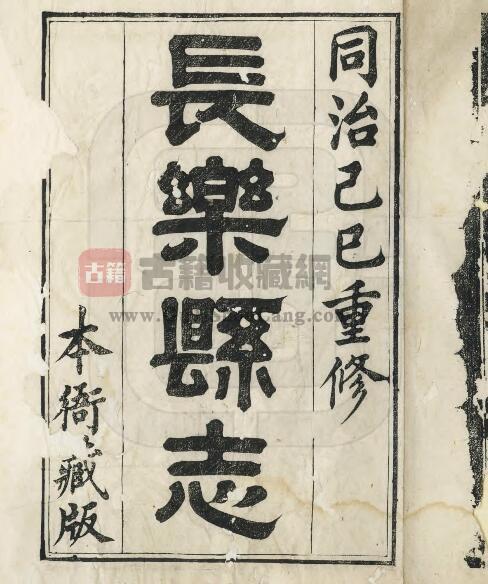 同治己巳重修
長樂縣志
本衙藏版
古籍
古籍收藏網